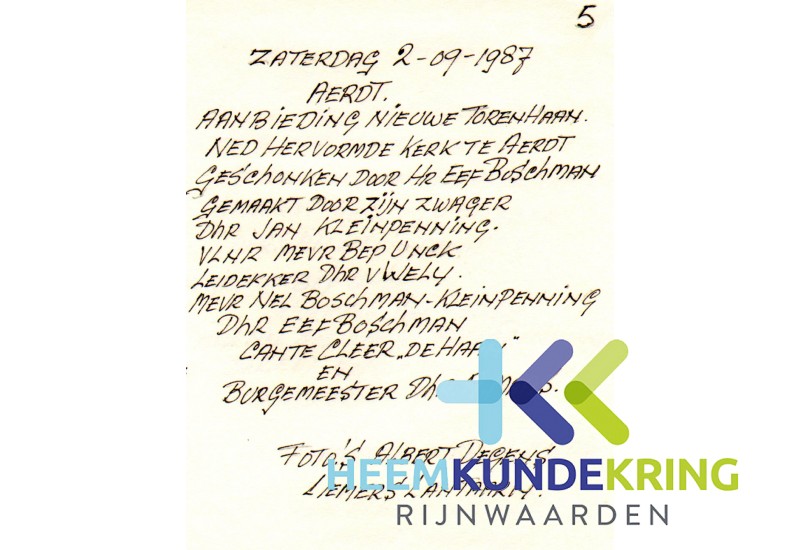 5
ZATERDAG 2-09-1987
AERDT.
AANBIEDING NIEUWE TORENHAAN.
NED HERVORMDE KERK TE AERDT
GESCHONKEN DOOR HR EEF BOSCHMAN
GEMAAKT DOOR ZIJN ZWAGER
DHR JAN KLEINPENNING.
VLNR MEVR BEP UNCK
LEIDEKKER DHR V WELY.
MEVR NEL BOSCHMAN-KLEINPENNING
DHR EEF BOSCHMAN
CANTE CLEER „DE
EN
BURGEMEESTER
FOTO'S ALBERT DEGENS
LIEMERS LANTAARN.
HEEMKUNDEKRING
RIJNWAARDEN